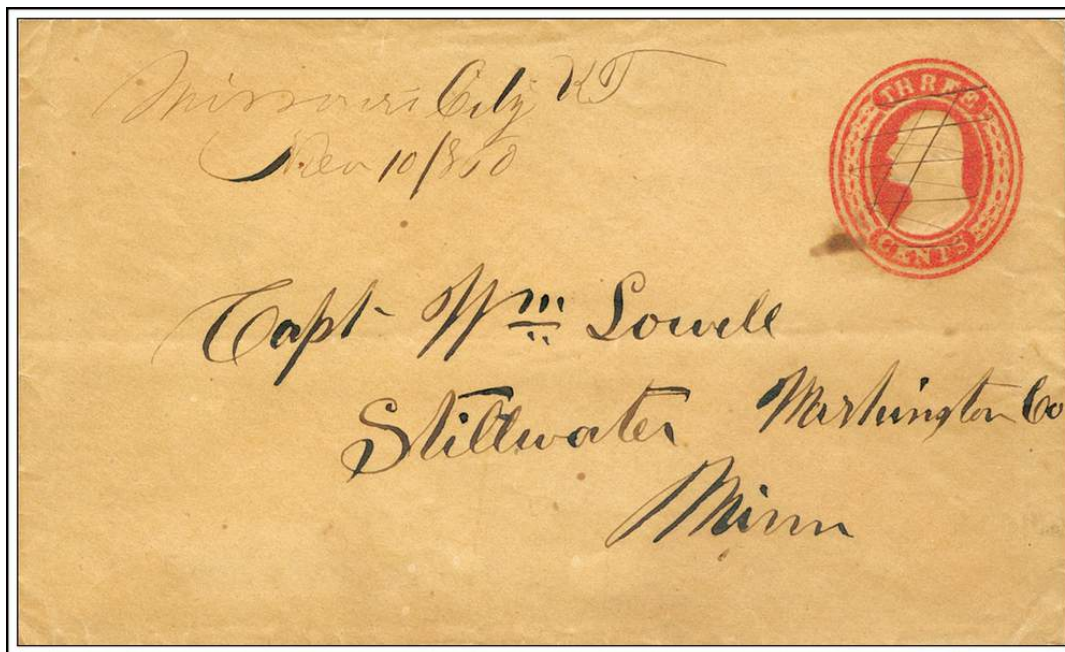 Missouri City KT
Nov 10/860
THREE
CENTS
Capt Wm Lowell
Stillwater Washington Co
Minn